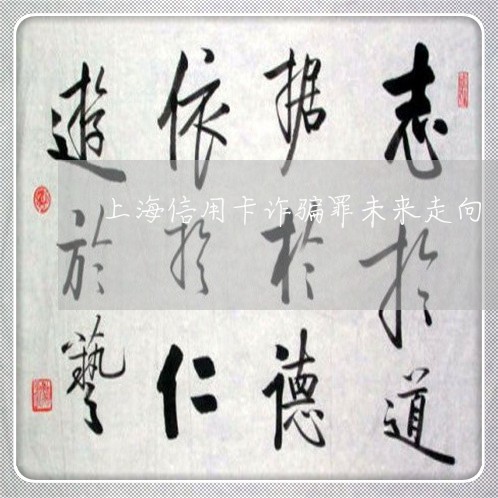 志於道
据於德
依於仁
遊於藝
上海信用卡诈骗罪未来走向